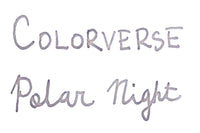 COLORVERSE
Polar Night